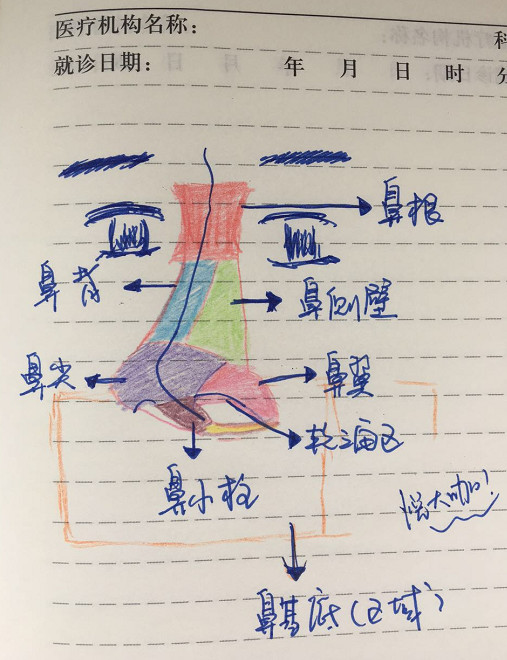 医疗机构名称:
科
就诊日期: 年 月 日 时 分
鼻根
鼻背
鼻侧壁
鼻尖
鼻翼
软三角区
鼻小柱
鼻基底(区域)